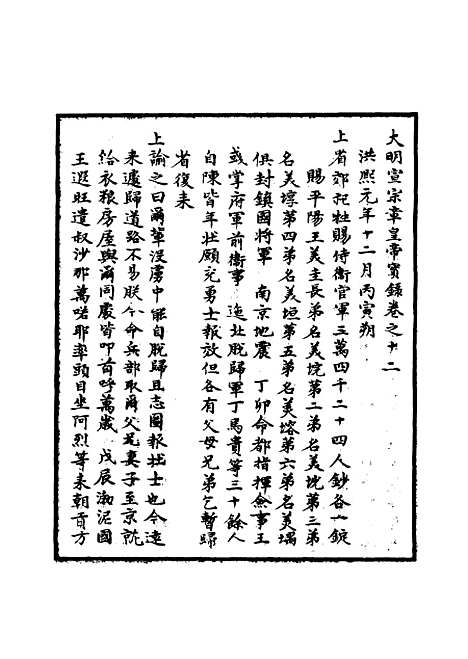 大明宣宗章皇帝實錄卷之十二
洪熙元年十二月丙寅朔
上省郊祀牲賜侍衛官軍三萬四千二十四人鈔各一錠
賜平陽王美圭長弟名美垸第二弟名美垸第三弟
名美埻第四弟名美垣第五弟名美塎第六弟名美堣
俱封鎮國將軍 南京地震 丁卯命都指揮僉事王
彧掌府軍前衛事 迤北脫歸軍丁馬貴等三十餘人
自陳皆年壯願充勇士報放但各有父母兄弟乞暫歸
省復来
上諭之曰爾輩没虜中能自脫歸且志圖報壯士也今遠
来遽歸道路不易朕今命兵部取爾父兄妻子至京就
給衣粮房屋與爾同處皆叩首呼萬歲 戊辰渤泥國
王遐旺遣叔沙那萬喏耶率頭目生阿烈等来朝貢方